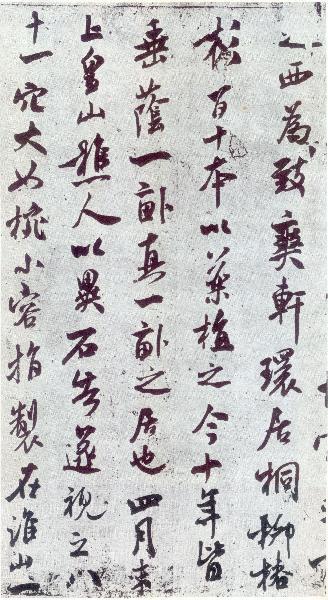 之西為致爽軒環居桐柳椿
杉百十本以藥植之今十年皆
垂蔭一畝真一畝之居也四月末
上皇山樵人以異石告遂視之八
十一穴大如椀小容指製在淮山一